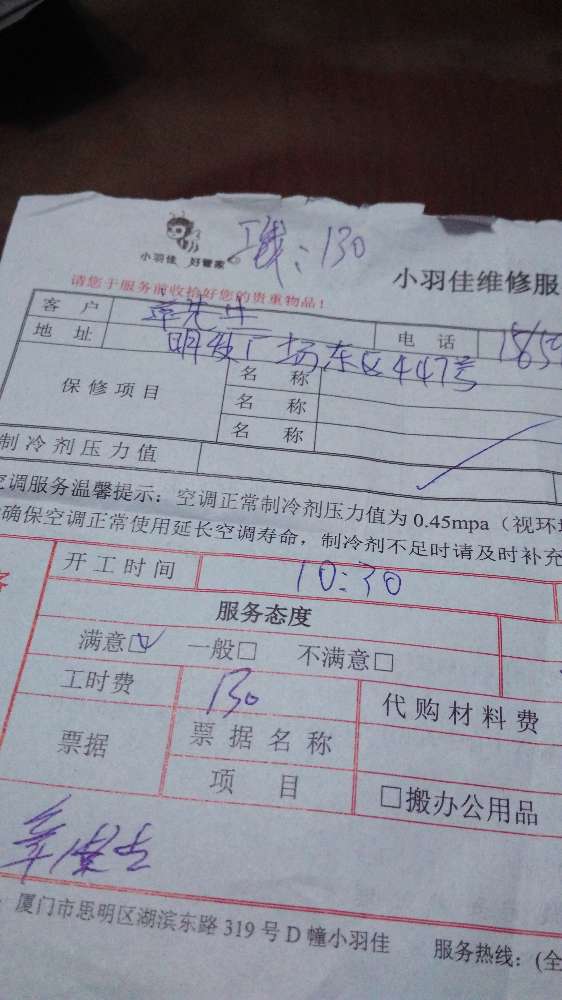 小羽佳 好管家
130
小羽佳维修服
请您于服务前收拾好您的贵重物品！
客户 先生 电话
地址 明发广场东区447号
保修项目 名称
名称
名称
制冷剂压力值
空调服务温馨提示：空调正常制冷剂压力值为 0.45mpa（视环
确保空调正常使用延长空调寿命，制冷剂不足时请及时补充
开工时间 10:30
服务态度
满意☑ 一般□ 不满意□
工时费 130 代购材料费
票据 票据名称
项目 □搬办公用品
厦门市思明区湖滨东路 319 号 D 幢小羽佳 服务热线：(全